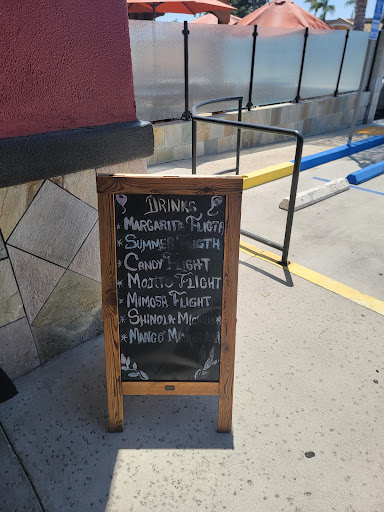 DRINKS
* MARGARITA FLIGTH
* SUMMER FLIGTH
* CANDY FLIGHT
* MOJITO FLIGHT
* MIMOSA FLIGHT
* SHINOLA
* MANGO